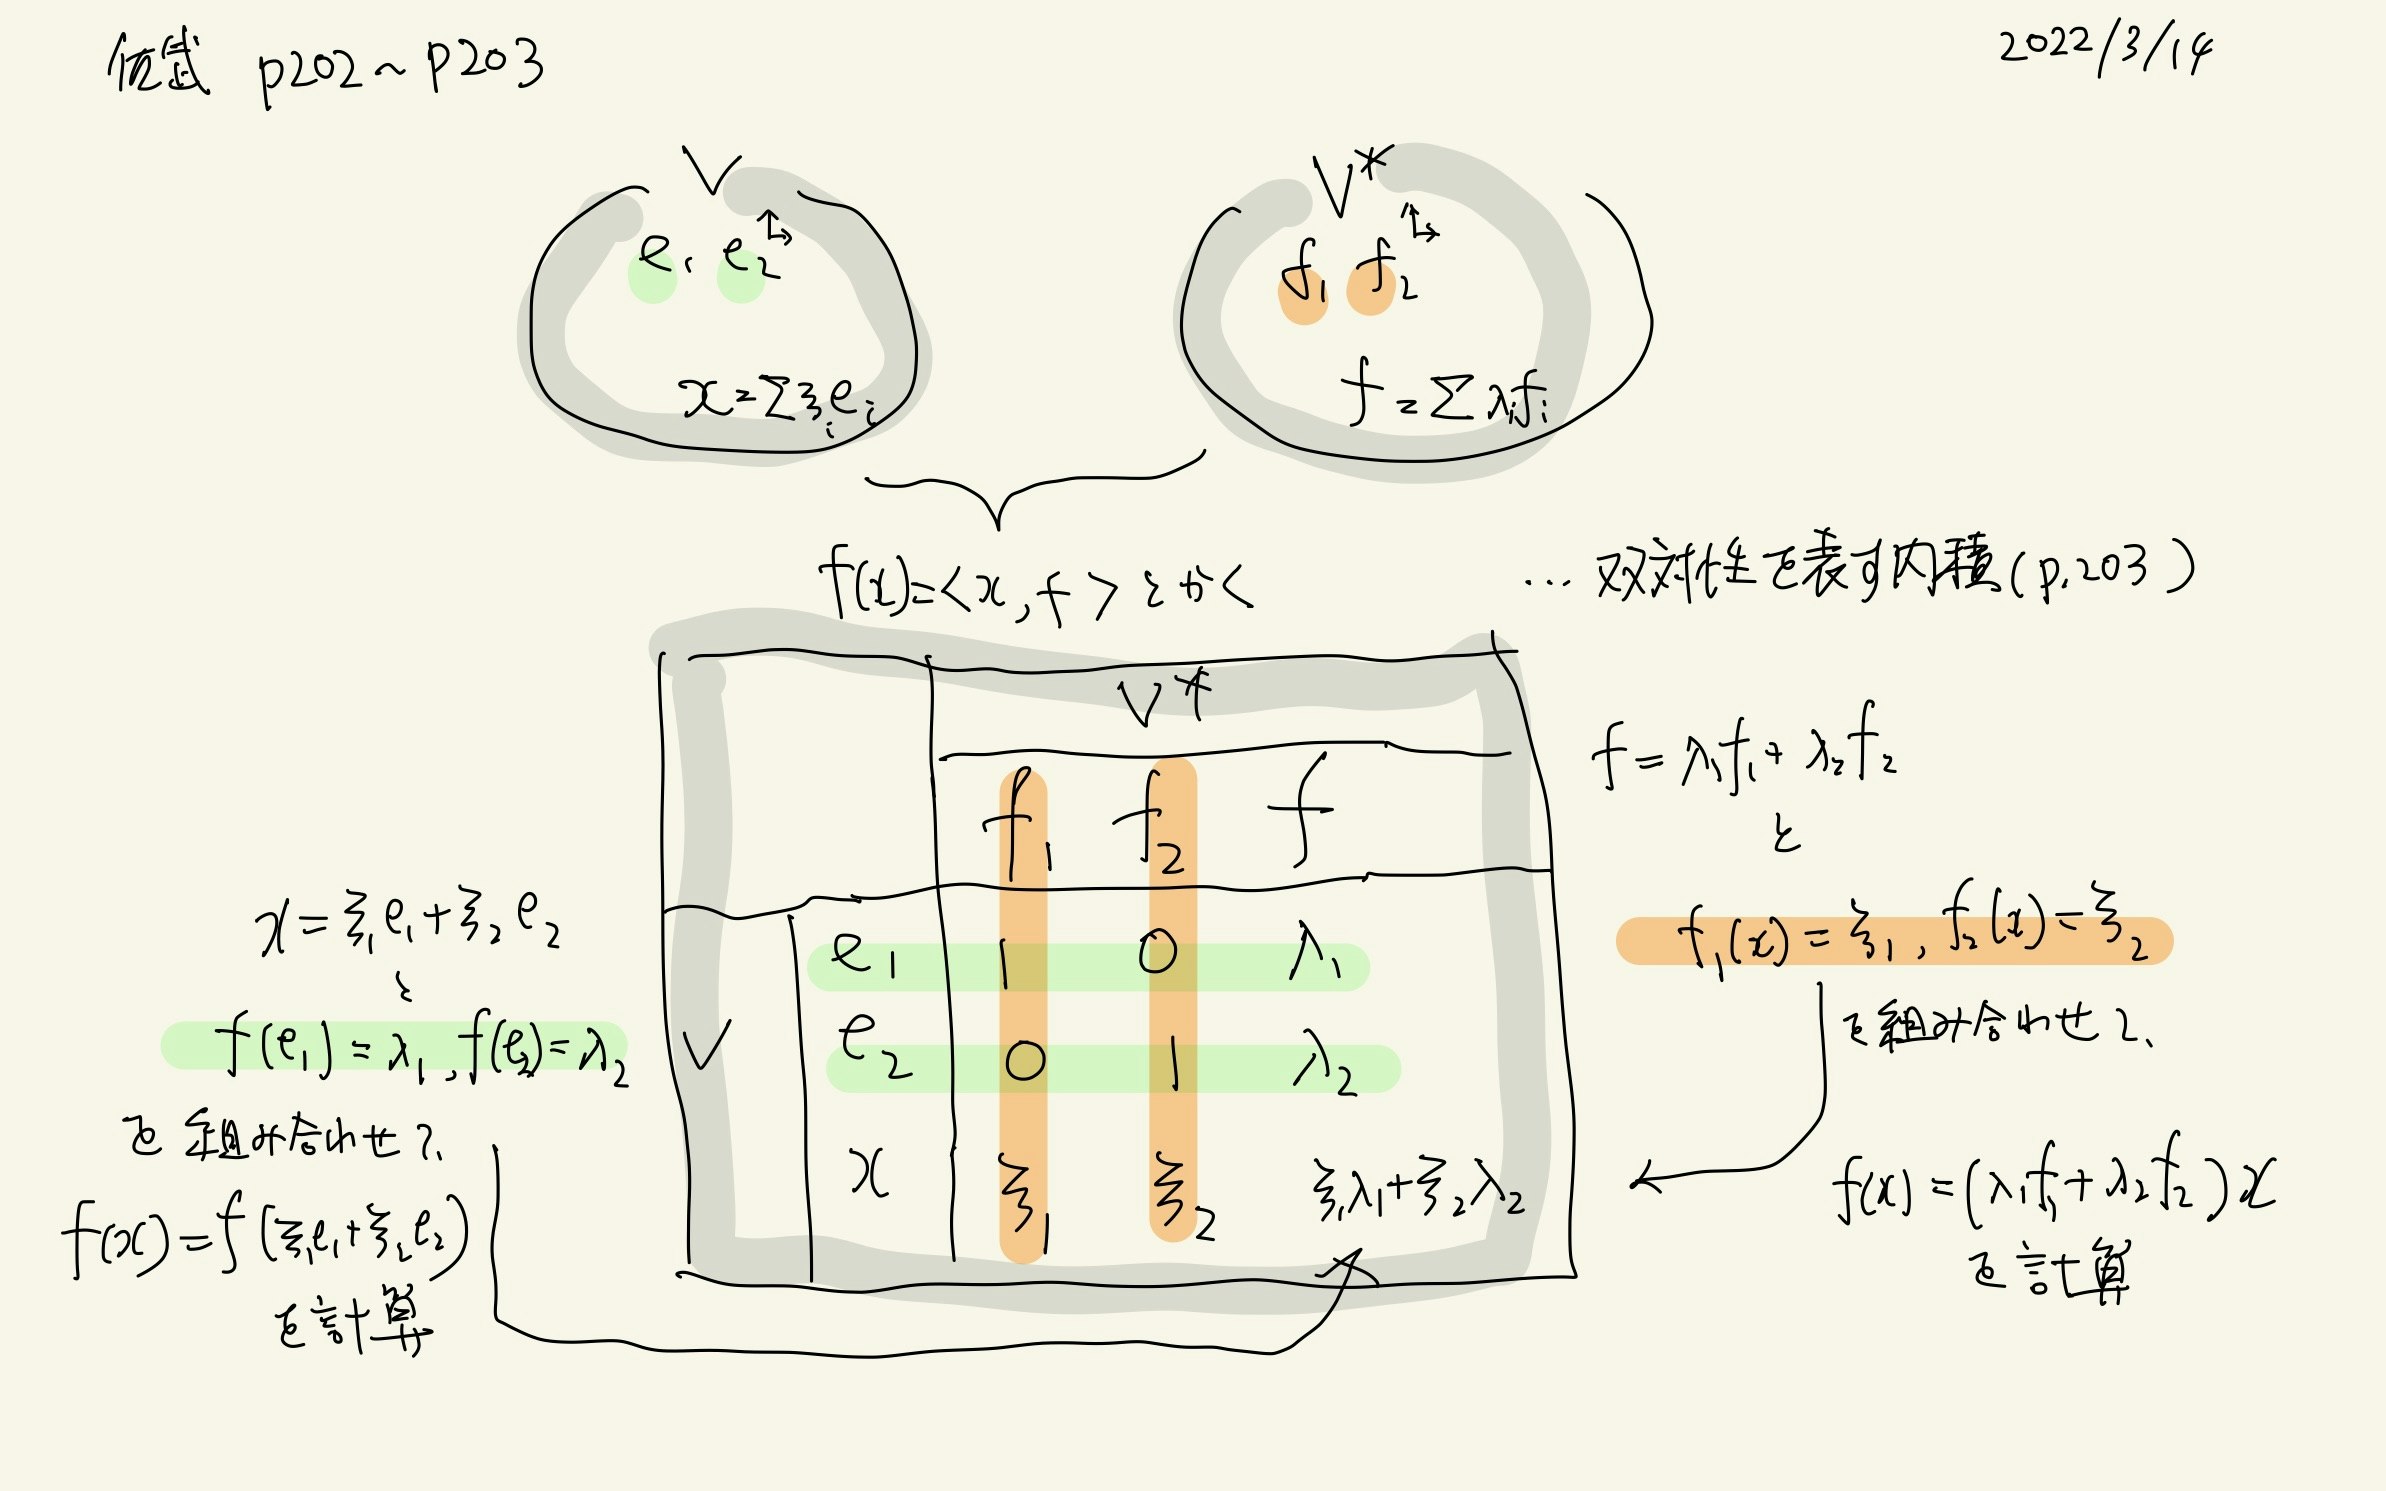 佐武 p202～p203
2022/3/14
V
e₁ e₂
x=Σξᵢeᵢ
V*
f₁ f₂
f=Σλᵢfᵢ
f(x)=<x,f>とかく
…双対性を表す内積(p.203)
V*
f₁ f₂ f
V
e₁ 1 0 λ₁
e₂ 0 1 λ₂
x ξ₁ ξ₂ ξ₁λ₁+ξ₂λ₂
x=ξ₁e₁+ξ₂e₂
と
f(e₁)=λ₁,f(e₂)=λ₂
を組み合わせて、
f(x)=f(ξ₁e₁+ξ₂e₂)
を計算
f=λ₁f₁+λ₂f₂
と
f₁(x)=ξ₁,f₂(x)=ξ₂
を組み合わせて、
f(x)=(λ₁f₁+λ₂f₂)x
を計算